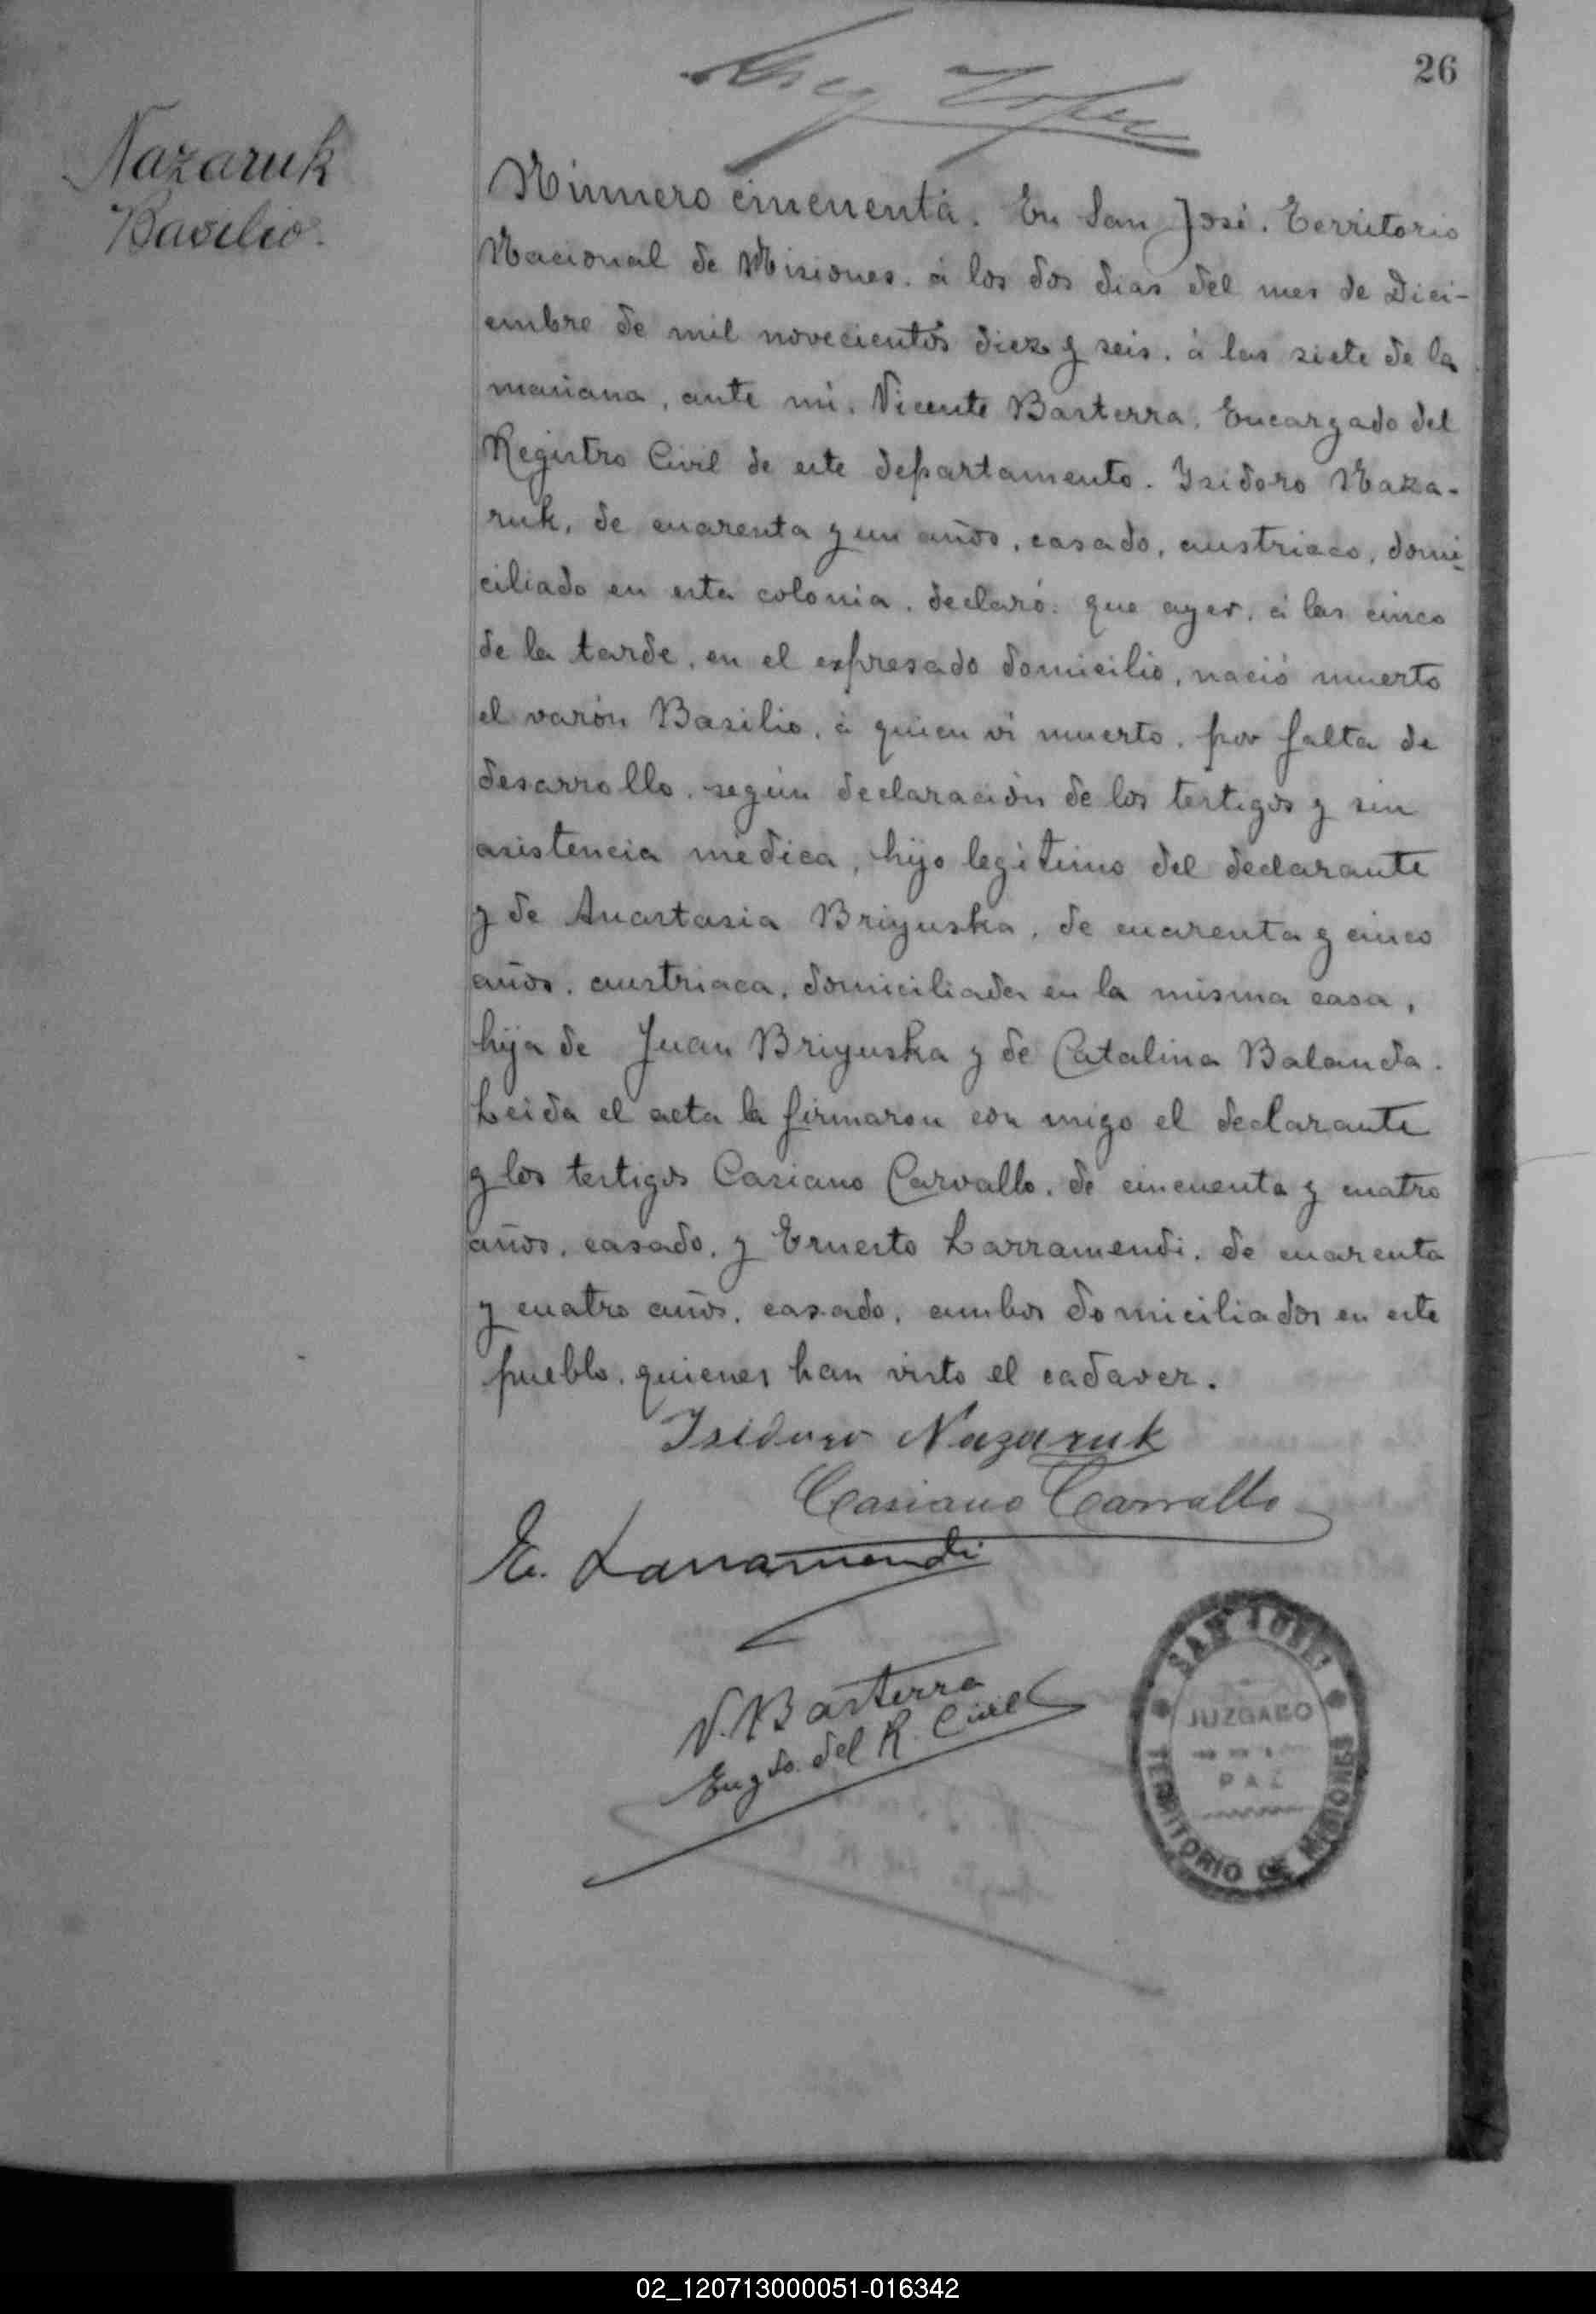 26
Nazaruk
Basilio.
Número cincuenta. En San José. Territorio
Nacional de Misiones. á los dos dias del mes de Dici-
embre de mil novecientos diez y seis. á las siete de la
mañana, ante mi. Vicente Basterra. Encargado del
Registro Civil de este departamento. Isidoro Naza-
ruk, de cuarenta y un años, casado, austriaco, domi-
ciliado en esta colonia, declaró: que ayer, á las cinco
de la tarde, en el expresado domicilio, nació muerto
el varón Basilio, á quien vi muerto, por falta de
desarrollo, según declaración de los testigos y sin
asistencia médica, hijo legítimo del declarante
y de Anastasia Briyuska, de cuarenta y cinco
años, austriaca, domiciliada en la misma casa,
hija de Juan Briyuska y de Catalina Balanda.
Leida el acta la firmaron con migo el declarante
y los testigos Casiano Carvallo, de cincuenta y cuatro
años, casado, y Ernesto Larramendi, de cuarenta
y cuatro años, casado, ambos domiciliados en este
pueblo, quienes han visto el cadaver.
Isidoro Nazaruk
Casiano Carvallo
E. Larramendi
V. Basterra
Engdo. del R. Civil
SAN JOSE
JUZGADO
PAZ
TERRITORIO DE MISIONES
02_120713000051-016342